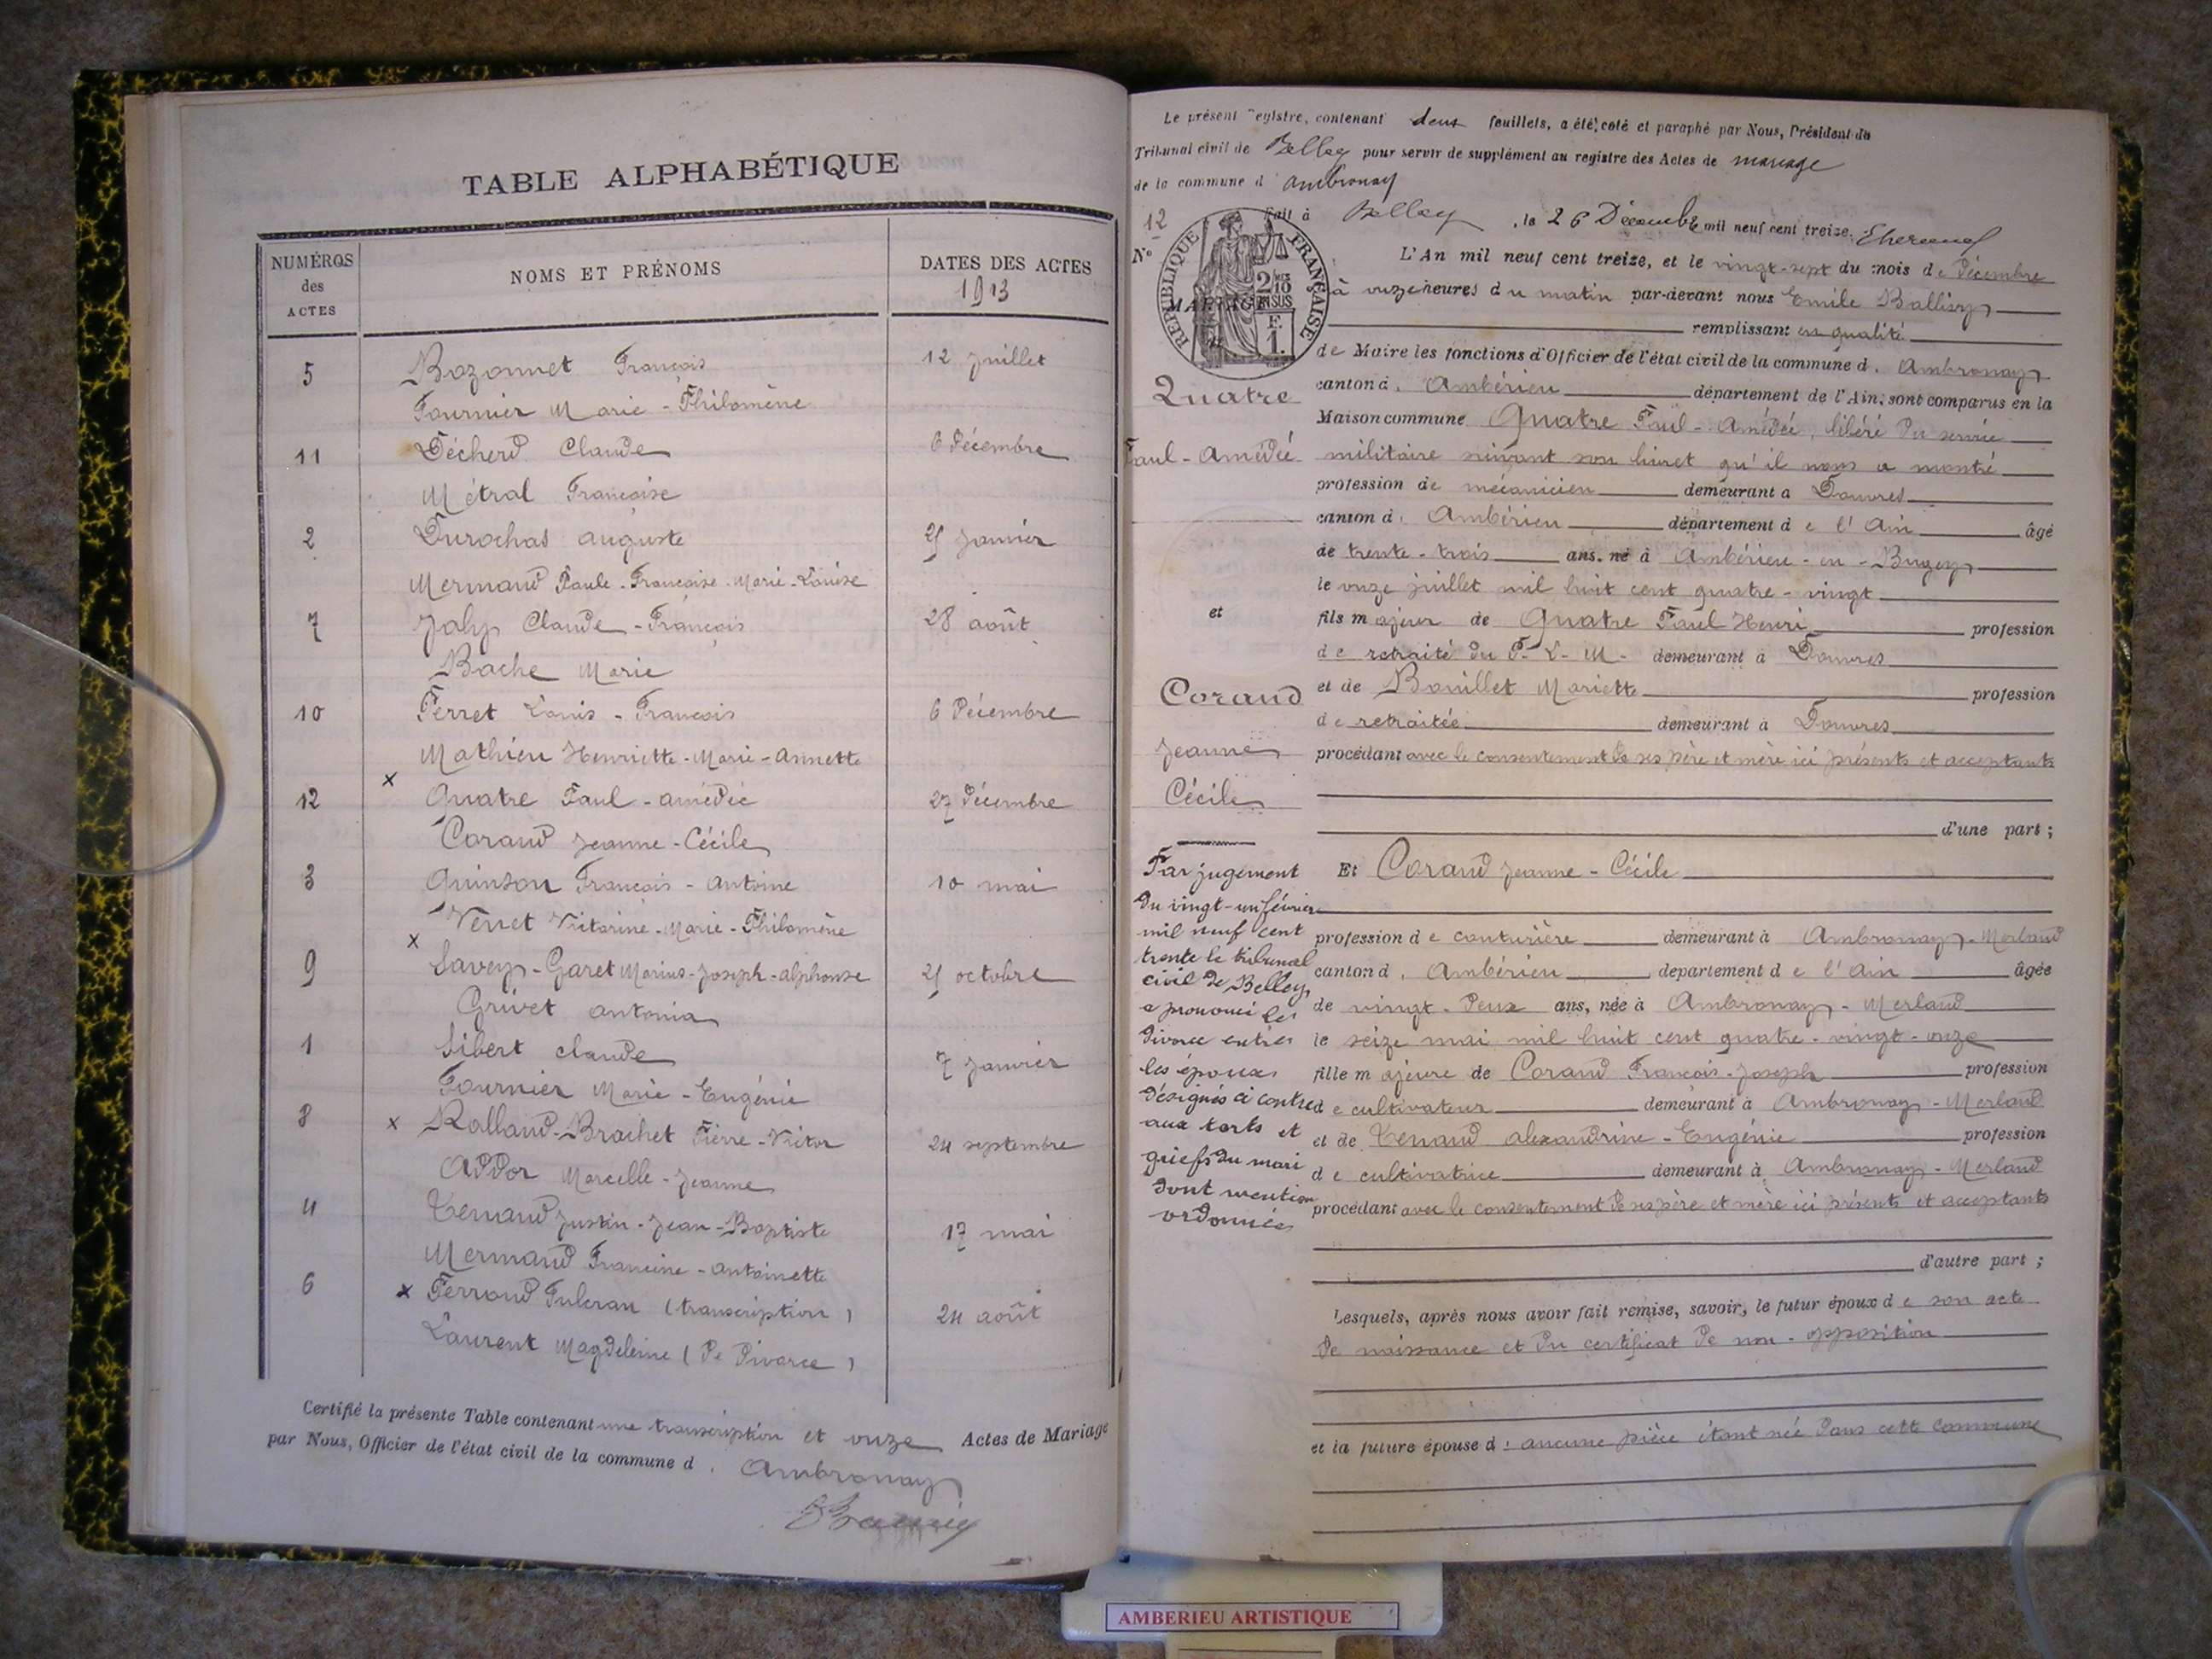 TABLE ALPHABÉTIQUE
NUMÉROS des ACTES
NOMS ET PRÉNOMS
DATES DES ACTES 1913
5 Bozonnet François 12 Juillet
Fournier Marie-Philomène
11 Décherd Claude 6 Décembre
Métral Françoise
2 Durochas Auguste 25 Janvier
Mermand Paule-Françoise-Marie-Louise
7 Joly Claude-François 28 août
Bache Marie
10 Perret Louis-François 6 Décembre
Mathieu Henriette-Marie-Annette
12 x Quatre Paul-Amédée 27 Décembre
Corand Jeanne-Cécile
3 Quinson François-Antoine 10 mai
Verret Victorine-Marie-Philomène
9 x Savey-Garet Marius-Joseph-Alphonse 25 octobre
Grivet Antonia
1 Sibert Claude 7 Janvier
Fournier Marie-Eugénie
8 x Rolland-Brachet Pierre-Victor 24 septembre
Addor Marcelle-Jeanne
4 Tenand Justin-Jean-Baptiste 17 mai
Mermand Francine-Antoinette
6 x Ferrand Fulcran (transcription) 24 août
Laurent Magdeleine (de Divorce)
Certifié la présente Table contenant une transcription et onze Actes de Mariage
par Nous, Officier de l'état civil de la commune d'Ambronay
Le présent registre, contenant deux feuillets, a été coté et paraphé par Nous, Président du
Tribunal civil de Belley pour servir de supplément au registre des Actes de mariage
de la commune d'Ambronay
Fait à Belley, le 26 Décembre mil neuf cent treize.
12
N°
RÉPUBLIQUE FRANÇAISE
2/10 EN SUS
F. 1.
MARIAGE
Quatre
Paul-Amédée
et
Corand
Jeanne
Cécile
Par jugement
du vingt-un février
mil neuf cent
trente le tribunal
civil de Belley
a prononcé le
divorce entre
les époux
désignés ci contre
aux torts et
griefs du mari
dont mention
ordonnée
L'An mil neuf cent treize, et le vingt-sept du mois de Décembre
à onze heures du matin par-devant nous Emile Ballivy
remplissant en qualité
de Maire les fonctions d'Officier de l'état civil de la commune d'Ambronay
canton d'Ambérieu département de l'Ain, sont comparus en la
Maison commune Quatre Paul-Amédée, libéré du service
militaire suivant son livret qu'il nous a montré
profession de mécanicien demeurant à Douvres
canton d'Ambérieu département de l'Ain âgé
de trente-trois ans, né à Ambérieu-en-Bugey
le onze juillet mil huit cent quatre-vingt
fils majeur de Quatre Paul Henri profession
de retraité du P-L-M- demeurant à Douvres
et de Bouillet Mariette profession
de retraitée demeurant à Douvres
procédant avec le consentement de ses père et mère ici présents et acceptants
d'une part;
Et Corand Jeanne-Cécile
profession de couturière demeurant à Ambronay-Merland
canton d'Ambérieu département de l'Ain âgée
de vingt-deux ans, née à Ambronay-Merland
le seize mai mil huit cent quatre-vingt-onze
fille majeure de Corand François-Joseph profession
de cultivateur demeurant à Ambronay-Merland
et de Tenand Alexandrine-Eugénie profession
de cultivatrice demeurant à Ambronay-Merland
procédant avec le consentement de ses père et mère ici présents et acceptants
d'autre part;
Lesquels, après nous avoir fait remise, savoir, le futur époux de son acte
de naissance et du certificat de non-opposition
et la future épouse d'aucune pièce étant née dans cette commune
AMBERIEU ARTISTIQUE